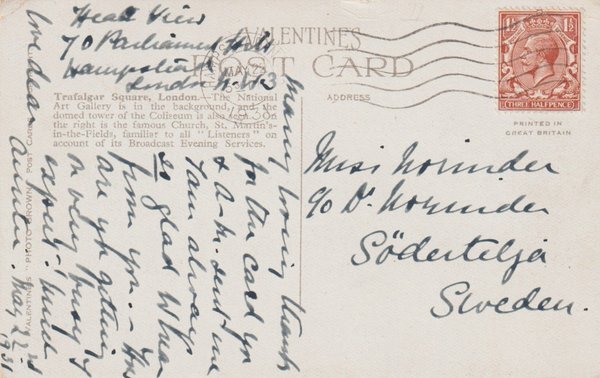 Heath View
70 Parliament Hill
Hampstead
London N.W.3
VALENTINES
POST CARD
Trafalgar Square, London.—The National
Art Gallery is in the background, and the
domed tower of the Coliseum is also seen. On
the right is the famous Church, St. Martin's-
in-the-Fields, familiar to all "Listeners" on
account of its Broadcast Evening Services.
Many loving thanks
for the card you
& sent me
I am always
so glad to hear
from you.
are getting
on very
expect. much
love dear
Auntie. May 22nd
1931
VALENTINES "PHOTO BROWN" POST CARD
ADDRESS
THREE HALFPENCE
PRINTED IN
GREAT BRITAIN
Miss Norinder
c/o Dr Norinder
Södertelje
Sweden.